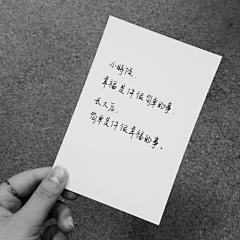 小时候，
幸福是件很简单的事，
长大后，
简单是件很幸福的事。